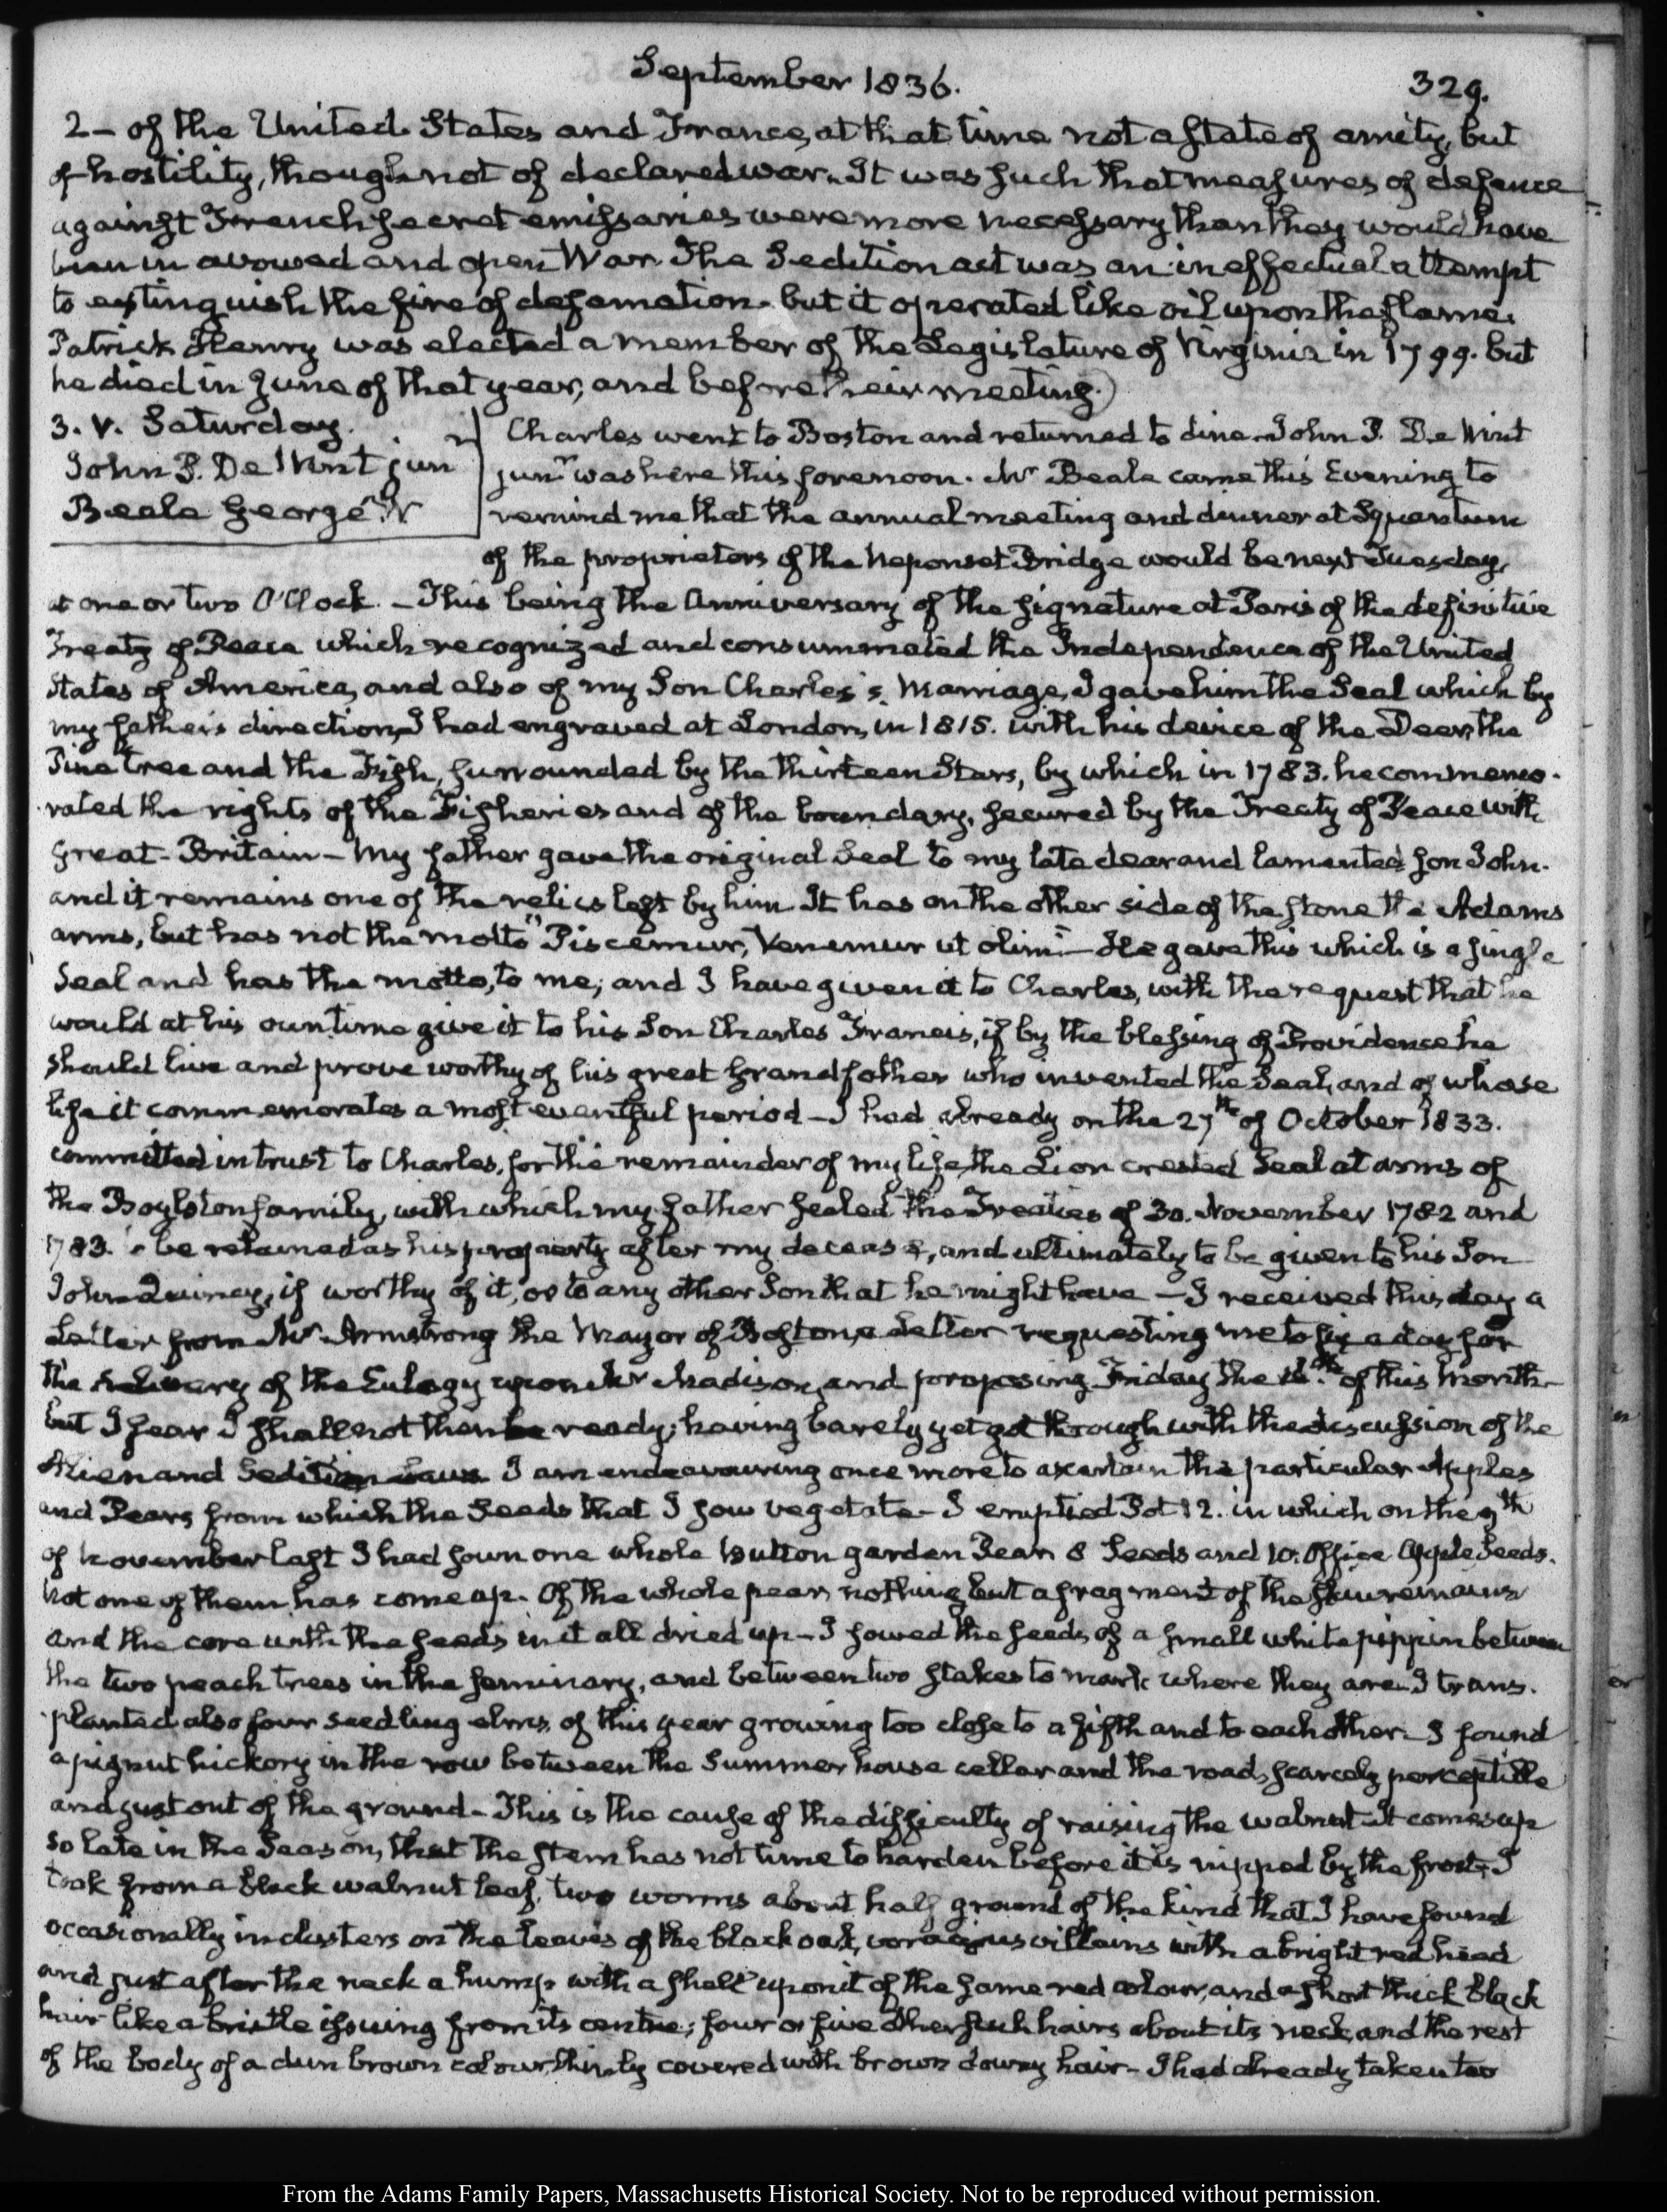 September 1836.
329.
2 – of the United States and France, at that time not a state of amity, but
of hostility, though not of declared war. It was such that measures of defence
against French secret emissaries were more necessary than they would have
been in avowed and open War. The Sedition act was an ineffectual attempt
to extinguish the fire of defamation. but it operated like oil upon the flame.
Patrick Henry was elected a member of the Legislature of Virginia in 1799. but
he died in June of that year, and before their meeting.)
3. V. Saturday.
John P. De Wint jun
Beale George W
Charles went to Boston and returned to dine. John P. De Wint
junr was here this forenoon. Mr Beale came this Evening to
remind me that the annual meeting and dinner at Squantum
of the proprietors of the Neponset Bridge would be next Tuesday,
at one or two O'Clock. – This being the Anniversary of the signature at Paris of the definitive
Treaty of Peace which recognized and consummated the Independence of the United
States of America, and also of my Son Charles's Marriage, I gave him the Seal which by
my father's direction, I had engraved at London, in 1815. with his device of the Deer, the
Pine tree and the Fish, surrounded by the thirteen Stars, by which in 1783. he commemo-
rated the rights of the Fisheries and of the boundary, secured by the Treaty of Peace with
Great-Britain – My father gave the original Seal to my late dear and lamented son John.
and it remains one of the relics left by him It has on the other side of the stone the Adams
arms, but has not the motto "Piscemur, Venemur ut olim" – He gave this which is a single
Seal and has the motto, to me; and I have given it to Charles, with the request that he
would at his own time give it to his Son Charles Francis, if by the blessing of Providence he
should live and prove worthy of his great Grandfather who invented the Seal, and of whose
life it commemorates a most eventful period – I had already on the 27th of October 1833.
committed in trust to Charles, for the remainder of my life, the Lion crested Seal at arms of
the Boylston family, with which my father sealed the Treaties of 30. November 1782 and
1783. to be retained as his property after my decease, and ultimately to be given to his Son
John Quincy, if worthy of it, or to any other Son that he might have – I received this day a
Letter from Mr Armstrong the Mayor of Boston, a Letter requesting me to fix a day for
the delivery of the Eulogy upon Mr Madison, and proposing Friday the of this Month
but I fear I shall not then be ready; having barely yet got through with the discussion of the
Alien and Sedition Laws. I am endeavouring once more to ascertain the particular Apples
and Pears from which the Seeds that I sow vegetate – I emptied Pot 12. in which on the 9th
of November last I had sown one whole button garden Pear 8 Seeds and 10. Office Apple Seeds.
not one of them has come up. Of the whole pear, nothing but a fragment of the skin remains
and the core with the seeds in it all dried up – I sowed the seeds of a small white pippin between
the two peach trees in the seminary, and between two stakes to mark where they are. I trans-
planted also four seedling elms, of this year growing too close to a fifth and to each other – I found
a pignut hickory in the row between the Summer house cellar and the road, scarcely perceptible
and just out of the ground – This is the cause of the difficulty of raising the walnut It comes up
so late in the Season, that the stem has not time to harden before it is nipped by the frost, I
took from a black walnut leaf, two worms about half ground of the kind that I have found
occasionally in clusters on the leaves of the black oak, voracious villains with a bright red head
and just after the neck a hump with a shell upon it of the same red colour, and a short thick black
hair like a bristle issuing from its centre; four or five other such hairs about its neck, and the rest
of the body of a dun brown colour, thinly covered with brown downy hair – I had already taken two
From the Adams Family Papers, Massachusetts Historical Society. Not to be reproduced without permission.